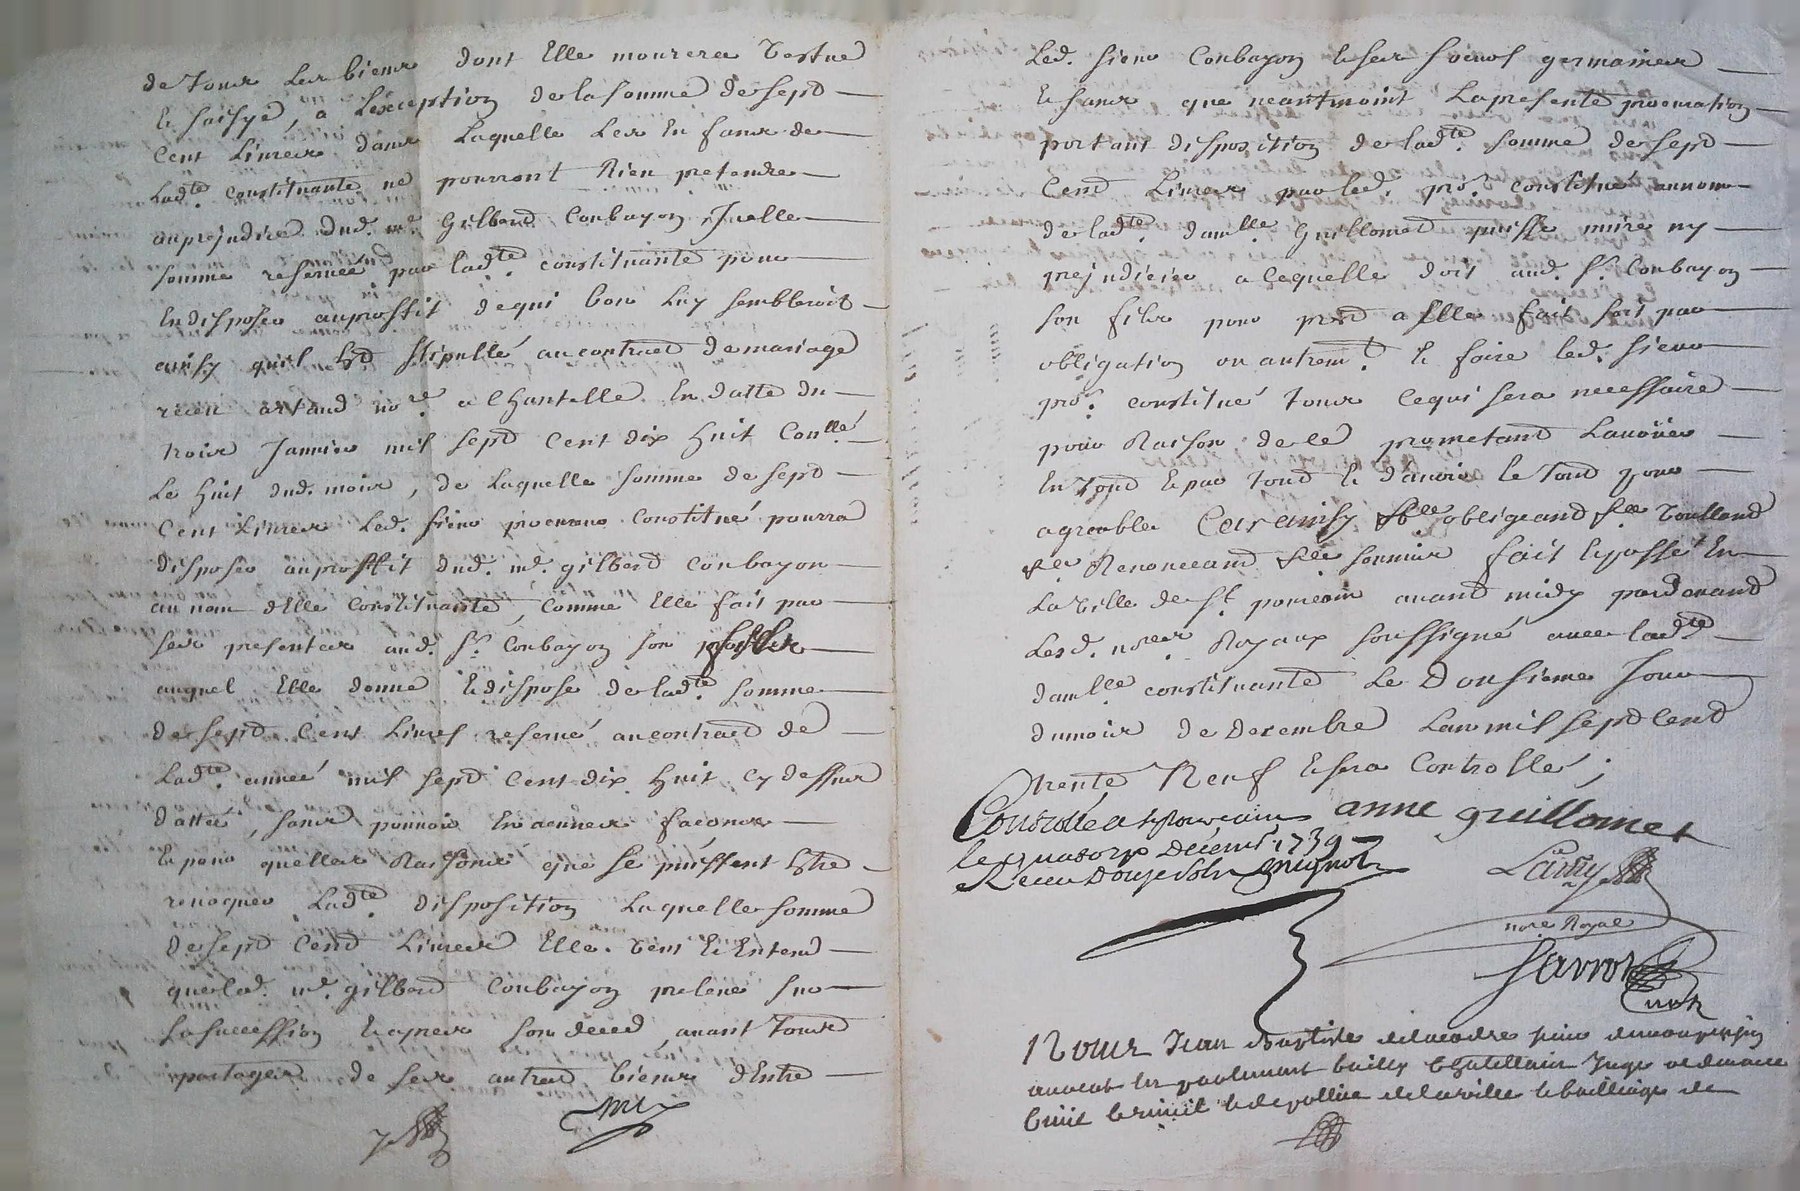 de tous les biens dont Elle mourera vestue
et saisye, a Lexception de la somme de sept
Cent Livres dans Laquelle Les Enfans de
Ladte constituante ne pourront Rien pretendre
au prejudice dud. mr. Gilbert Coubayon Icelle
somme reservée par ladte. constituante pour
En disposer au proffit de qui bon Luy sembleroit
ainsy quil Est stipullé au contract de mariage
receu artaud nore a Chantelle En datte du
trois Janvier mil sept Cent dix huit Conllé
Le huit dud. mois, de Laquelle somme de sept
Cent Livres Led. sieur procureur Constitué pourra
disposer au proffit dud. mr. gilbert Coubayon
au nom dElle Constituante, Comme Elle fait par
ses presentes aud. Sr. Coubayon son fils
auquel Elle donne Et dispose de ladte. somme
de sept Cent Livres reservé au contract de
Ladte. année mil sept Cent dix huit Cy dessus
datté, sans pouvoir En aucunes façons
Et pour quelles Raisons que se puissent Etre
revoquer Ladte. disposition Laquelle somme
de sept Cent Livres Elle veut Et Entend
que led. mr. gilbert Coubayon preleve sur
sa succession Et apres son deced, avant tous
partages de ses autres biens dEntre
Led. sieur Coubayon Et ses soeurs germaines
Et sans que neantmoint La presente procuration
portant disposition de ladte. somme de sept
Cent Livres par led. pror. constitué au nom
de ladte. damlle. Guillomet puisse nuire ny
prejudicier a Laquelle doit aud. Sr. Coubayon
son fils pour pret a Elle fait soit par
obligation ou autremt. Et faire led. sieur
pror. constitué tous Ce qui sera necessaire
pour Raison de Ce prometant Lavoüer
En tout Et par tout Et davoir Le tout pour
agreable Car ainsy &c obligeand &c Voulland
&c Renonceand &c soumis fait Et passé En
La ville de St. pourcain avant midy pardevant
Lesd. nores Royaux soussigné avec ladte.
damlle constituante Le Dousieme Jour
du mois de decembre Lan mil sept Cent
trente Neuf Et sera Controllé;
Controllé a St pourcain anne guillomet
le quatorze décembr 1739
Receu Douze sols
Lamy
nore Royal
Nous Jean Baptiste
avocat En parlement bailly Chatellain Juge ordinaire
Civil Criminel Et de pollice de la ville Et bailliage de